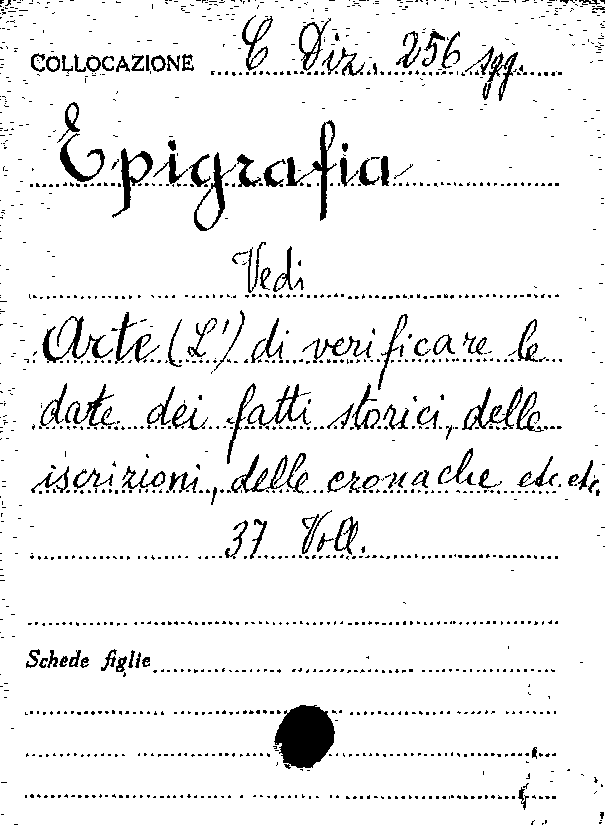 COLLOCAZIONE C Diz. 256 sgg.
Epigrafia
Vedi
Arte (L') di verificare le
date dei fatti storici, delle
iscrizioni, delle cronache etc. etc.
37 Voll.
Schede figlie